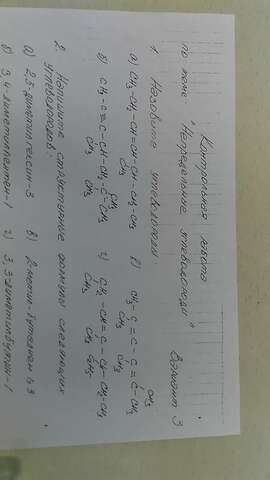 Контрольная работа
по теме: "Непредельные углеводороды" Вариант 3
1. Назовите углеводороды
а) CH3-CH-CH=CH-CH-CH2-CH3
CH3
в) CH3-C=C-C=C-CH3
CH3 CH3
CH3
б) CH3-C=C-CH-CH2-C=CH2
CH3 CH3
г) CH3-CH=C-CH-CH2-CH3
CH3
2. Напишите структурные формулы следующих
углеводородов:
а) 2,5-диметилгексин-3 в) 2-метил бутадиен 1,3
б) 3,4-диметилпентен-1 г) 3,3-диметилбутин-1